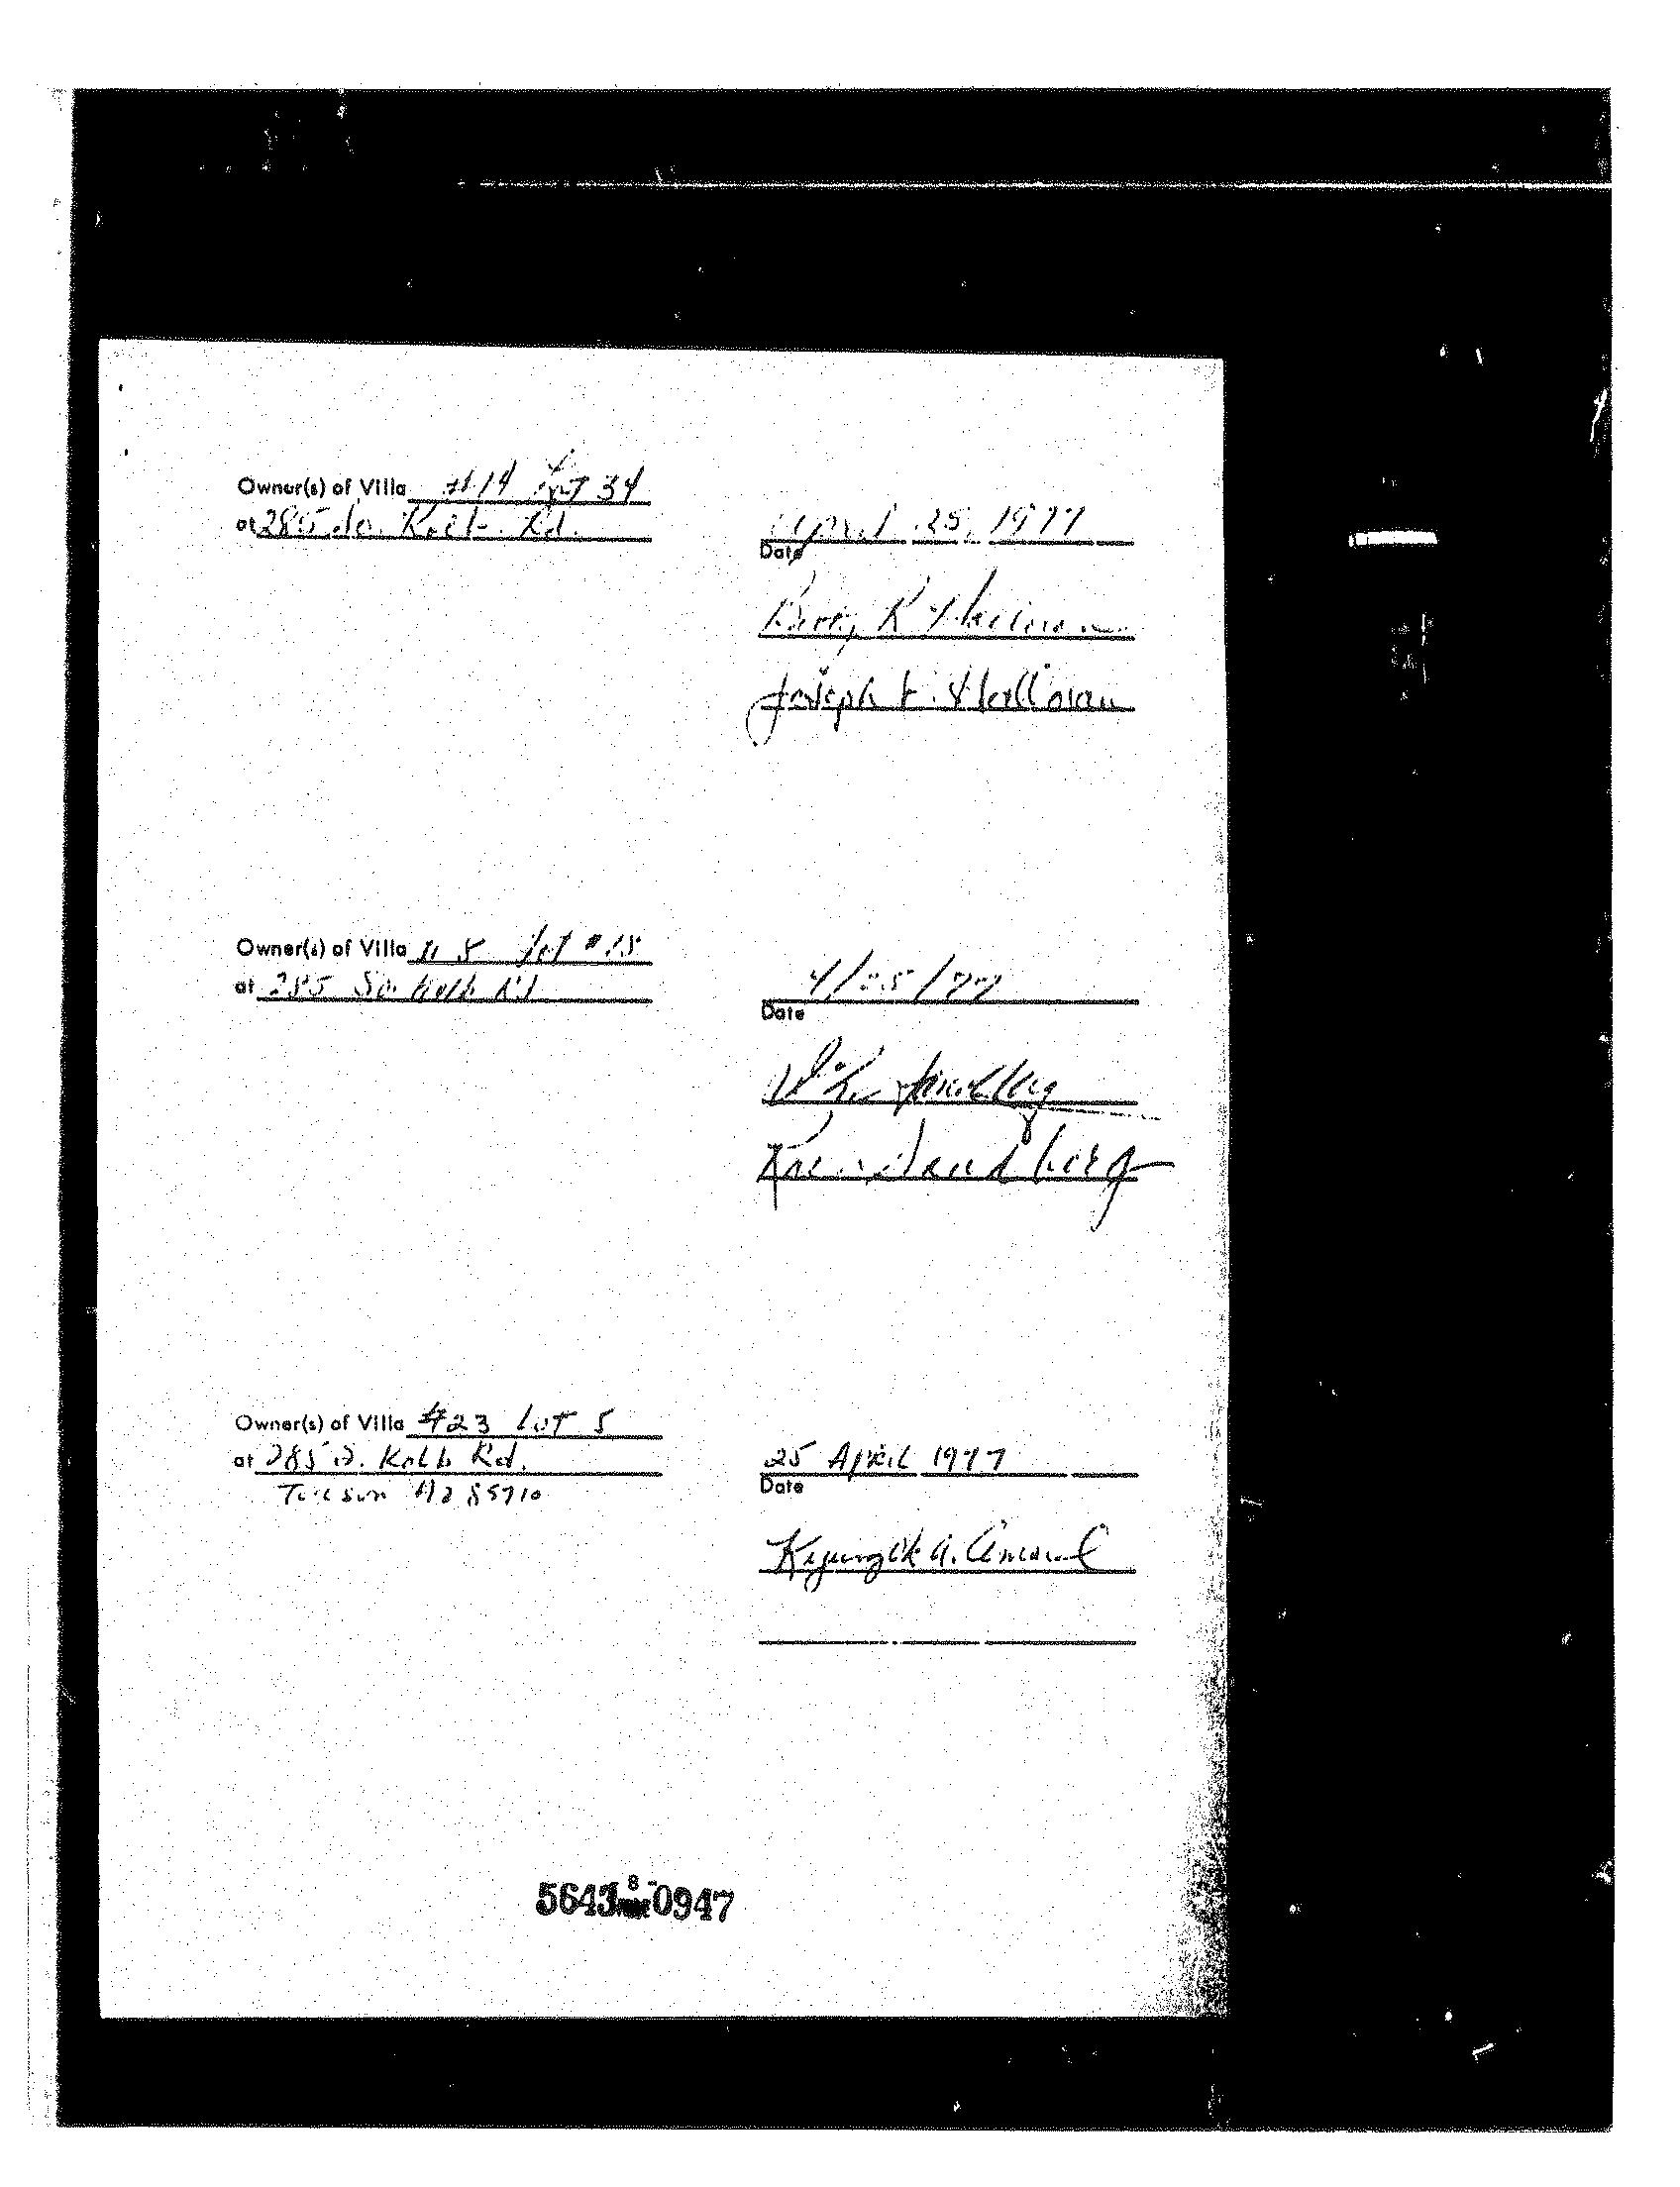 Owner(s) of Villa #14 Lot 34
at 285 So. Kolb Rd.
April 25, 1977
Date
R
Joseph F. Halloran
Owner(s) of Villa # 8 Lot #18
at 285 So. Kolb Rd
4/25/77
Date
Owner(s) of Villa #23 Lot 5
at 285 S. Kolb Rd.
Tucson Az 85710
25 April 1977
Date
Kyung Ok A.
5643 0947